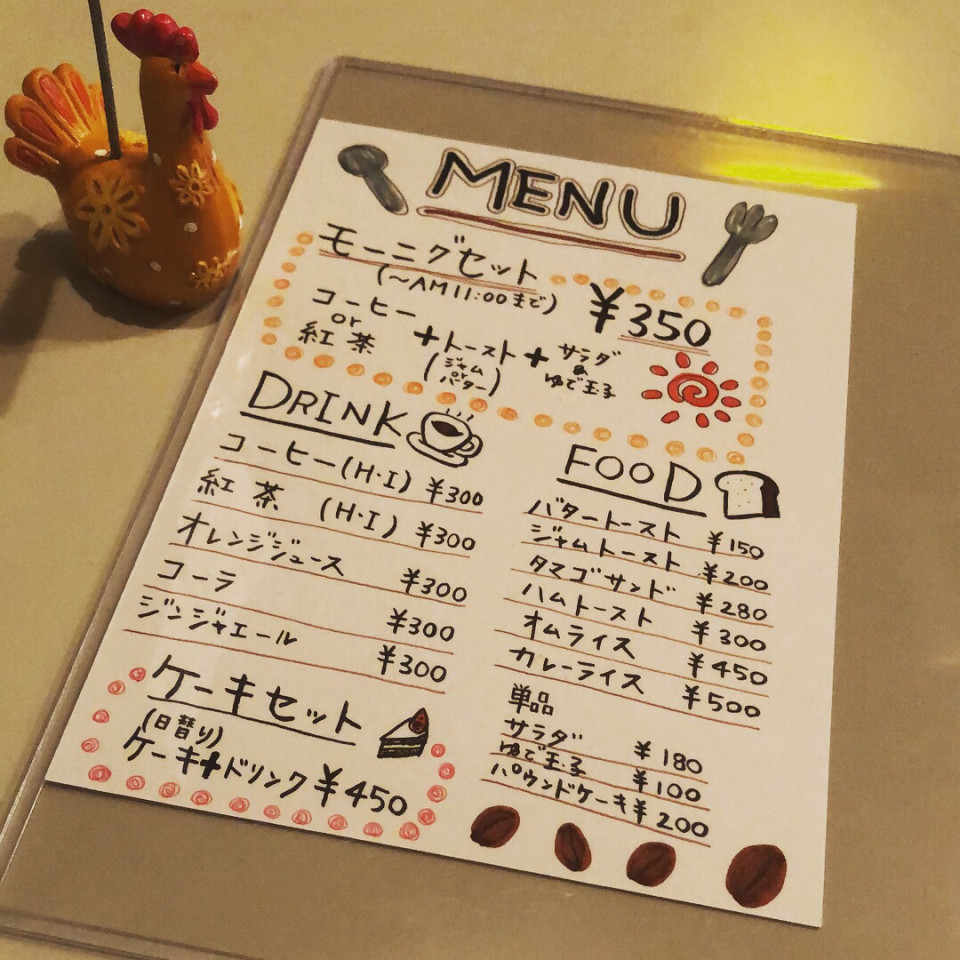 MENU
モーニグセット
(～AM11:00まで)
¥350
コーヒー
or
紅茶
+トースト+
(ジャム
or
バター)
サラダ
&
ゆで玉子
DRINK
コーヒー(H・I) ¥300
紅茶 (H・I) ¥300
オレンジジュース ¥300
コーラ ¥300
ジンジャエール ¥300
ケーキセット
(日替り)
ケーキ+ドリンク ¥450
FOOD
バタートースト ¥150
ジャムトースト ¥200
タマゴサンド ¥280
ハムトースト ¥300
オムライス ¥450
カレーライス ¥500
単品
サラダ ¥180
ゆで玉子 ¥100
パウンドケーキ ¥200